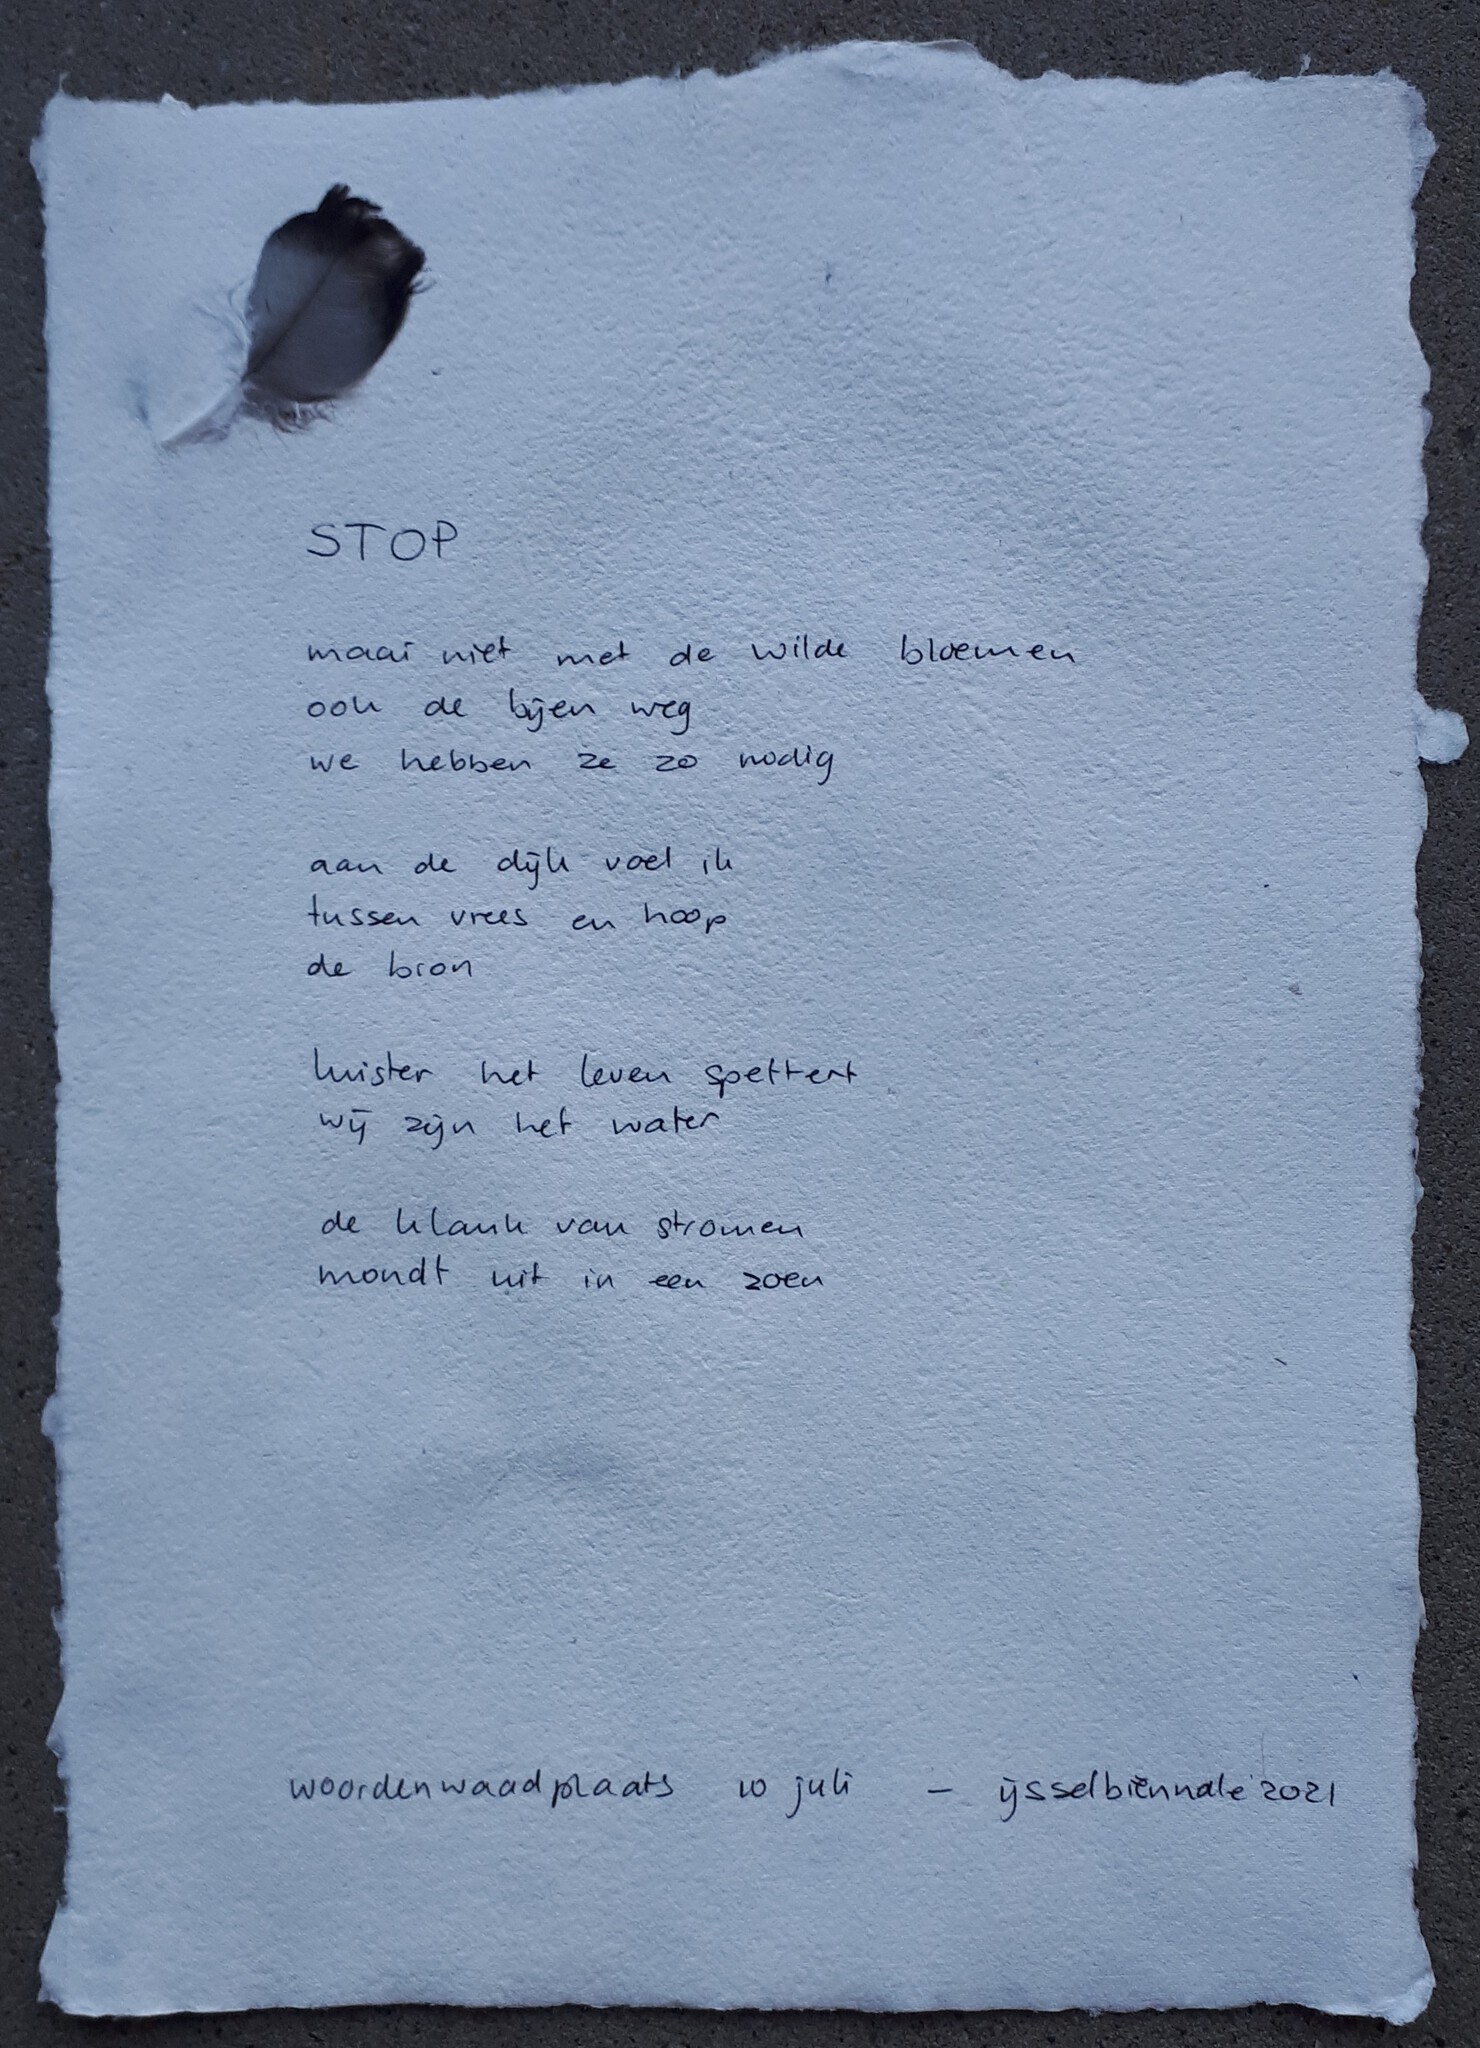 STOP
maai niet met de wilde bloemen
ook de bijen weg
we hebben ze zo nodig
aan de dijk voel ik
tussen vrees en hoop
de bron
luister het leven spettert
wij zijn het water
de klank van stromen
mondt uit in een zoen
woordenwaadplaats 10 juli – ijsselbiënnale 2021